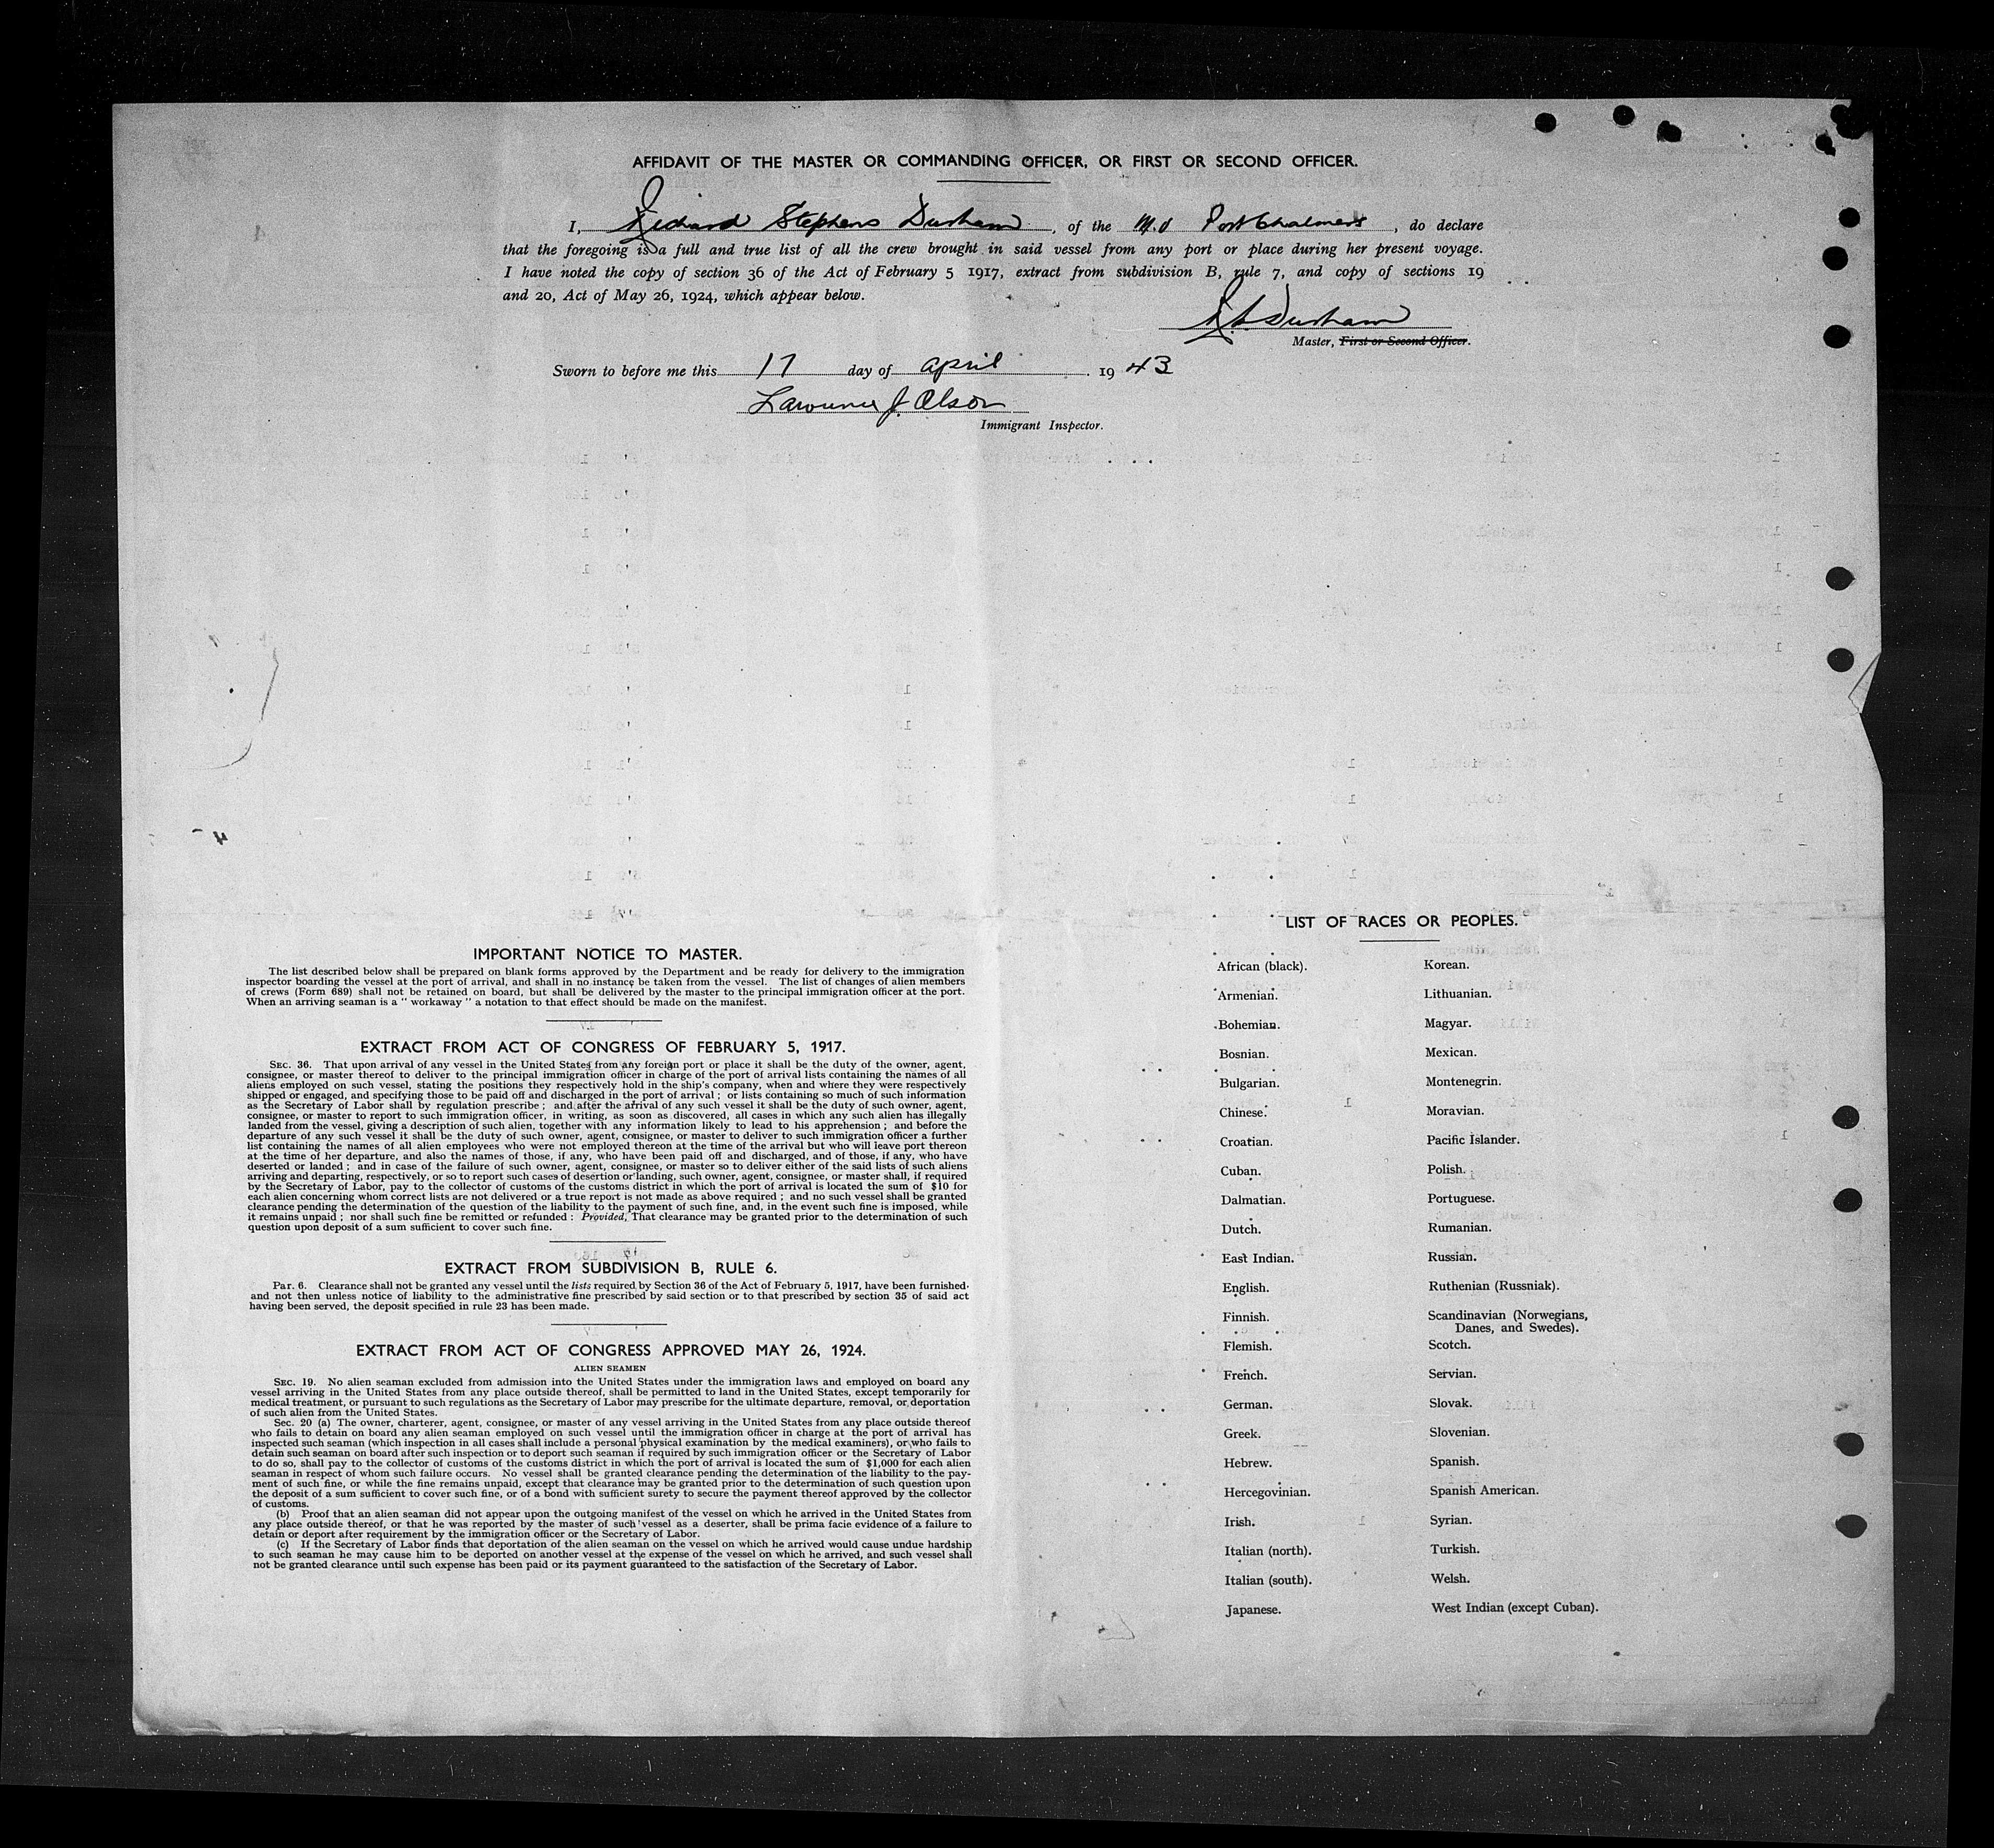 AFFIDAVIT OF THE MASTER OR COMMANDING OFFICER, OR FIRST OR SECOND OFFICER.
I, Richard Stephens Durham, of the M.V Port Chalmers, do declare
that the foregoing is a full and true list of all the crew brought in said vessel from any port or place during her present voyage.
I have noted the copy of section 36 of the Act of February 5 1917, extract from subdivision B, rule 7, and copy of sections 19
and 20, Act of May 26, 1924, which appear below.
Durham
Master, First or Second Officer.
Sworn to before me this 17 day of April. 19 43
Lawrence J. Olson
Immigrant Inspector.
IMPORTANT NOTICE TO MASTER.
The list described below shall be prepared on blank forms approved by the Department and be ready for delivery to the immigration
inspector boarding the vessel at the port of arrival, and shall in no instance be taken from the vessel. The list of changes of alien members
of crews (Form 689) shall not be retained on board, but shall be delivered by the master to the principal immigration officer at the port.
When an arriving seaman is a " workaway " a notation to that effect should be made on the manifest.
EXTRACT FROM ACT OF CONGRESS OF FEBRUARY 5, 1917.
SEC. 36. That upon arrival of any vessel in the United States from any foreign port or place it shall be the duty of the owner, agent,
consignee, or master thereof to deliver to the principal immigration officer in charge of the port of arrival lists containing the names of all
aliens employed on such vessel, stating the positions they respectively hold in the ship's company, when and where they were respectively
shipped or engaged, and specifying those to be paid off and discharged in the port of arrival ; or lists containing so much of such information
as the Secretary of Labor shall by regulation prescribe ; and after the arrival of any such vessel it shall be the duty of such owner, agent,
consignee, or master to report to such immigration officer, in writing, as soon as discovered, all cases in which any such alien has illegally
landed from the vessel, giving a description of such alien, together with any information likely to lead to his apprehension ; and before the
departure of any such vessel it shall be the duty of such owner, agent, consignee, or master to deliver to such immigration officer a further
list containing the names of all alien employees who were not employed thereon at the time of the arrival but who will leave port thereon
at the time of her departure, and also the names of those, if any, who have been paid off and discharged, and of those, if any, who have
deserted or landed ; and in case of the failure of such owner, agent, consignee, or master so to deliver either of the said lists of such aliens
arriving and departing, respectively, or so to report such cases of desertion or landing, such owner, agent, consignee, or master shall, if required
by the Secretary of Labor, pay to the collector of customs of the customs district in which the port of arrival is located the sum of $10 for
each alien concerning whom correct lists are not delivered or a true report is not made as above required ; and no such vessel shall be granted
clearance pending the determination of the question of the liability to the payment of such fine, and, in the event such fine is imposed, while
it remains unpaid ; nor shall such fine be remitted or refunded : Provided, That clearance may be granted prior to the determination of such
question upon deposit of a sum sufficient to cover such fine.
EXTRACT FROM SUBDIVISION B, RULE 6.
PAR. 6. Clearance shall not be granted any vessel until the lists required by Section 36 of the Act of February 5, 1917, have been furnished.
and not then unless notice of liability to the administrative fine prescribed by said section or to that prescribed by section 35 of said act
having been served, the deposit specified in rule 23 has been made.
EXTRACT FROM ACT OF CONGRESS APPROVED MAY 26, 1924.
ALIEN SEAMEN
SEC. 19. No alien seaman excluded from admission into the United States under the immigration laws and employed on board any
vessel arriving in the United States from any place outside thereof, shall be permitted to land in the United States, except temporarily for
medical treatment, or pursuant to such regulations as the Secretary of Labor may prescribe for the ultimate departure, removal, or deportation
of such alien from the United States.
Sec. 20 (a) The owner, charterer, agent, consignee, or master of any vessel arriving in the United States from any place outside thereof
who fails to detain on board any alien seaman employed on such vessel until the immigration officer in charge at the port of arrival has
inspected such seaman (which inspection in all cases shall include a personal physical examination by the medical examiners), or who fails to
detain such seaman on board after such inspection or to deport such seaman if required by such immigration officer or the Secretary of Labor
to do so, shall pay to the collector of customs of the customs district in which the port of arrival is located the sum of $1,000 for each alien
seaman in respect of whom such failure occurs. No vessel shall be granted clearance pending the determination of the liability to the pay-
ment of such fine, or while the fine remains unpaid, except that clearance may be granted prior to the determination of such question upon
the deposit of a sum sufficient to cover such fine, or of a bond with sufficient surety to secure the payment thereof approved by the collector
of customs.
(b) Proof that an alien seaman did not appear upon the outgoing manifest of the vessel on which he arrived in the United States from
any place outside thereof, or that he was reported by the master of such vessel as a deserter, shall be prima facie evidence of a failure to
detain or deport after requirement by the immigration officer or the Secretary of Labor.
(c) If the Secretary of Labor finds that deportation of the alien seaman on the vessel on which he arrived would cause undue hardship
to such seaman he may cause him to be deported on another vessel at the expense of the vessel on which he arrived, and such vessel shall
not be granted clearance until such expense has been paid or its payment guaranteed to the satisfaction of the Secretary of Labor.
LIST OF RACES OR PEOPLES.
African (black). Korean.
Armenian. Lithuanian.
Bohemian. Magyar.
Bosnian. Mexican.
Bulgarian. Montenegrin.
Chinese. Moravian.
Croatian. Pacific Islander.
Cuban. Polish.
Dalmatian. Portuguese.
Dutch. Rumanian.
East Indian. Russian.
English. Ruthenian (Russniak).
Finnish. Scandinavian (Norwegians,
Danes, and Swedes).
Flemish. Scotch.
French. Servian.
German. Slovak.
Greek. Slovenian.
Hebrew. Spanish.
Hercegovinian. Spanish American.
Irish. Syrian.
Italian (north). Turkish.
Italian (south). Welsh.
Japanese. West Indian (except Cuban).